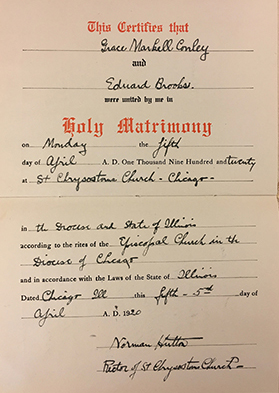 This Certifies that
Grace Markell Conley
and
Edward Brooks.
were united by me in
Holy Matrimony
on Monday the fifth
day of April A. D. One Thousand Nine Hundred and twenty
at St Chrysostoms Church - Chicago -
in the Diocese and State of Illinois
according to the rites of the Episcopal Church in the
Diocese of Chicago
and in accordance with the Laws of the State of Illinois
Dated Chicago Ill this fifth - 5th day of
April A. D. 1920
Norman Hutton
Rector of St Chrysostoms Church -